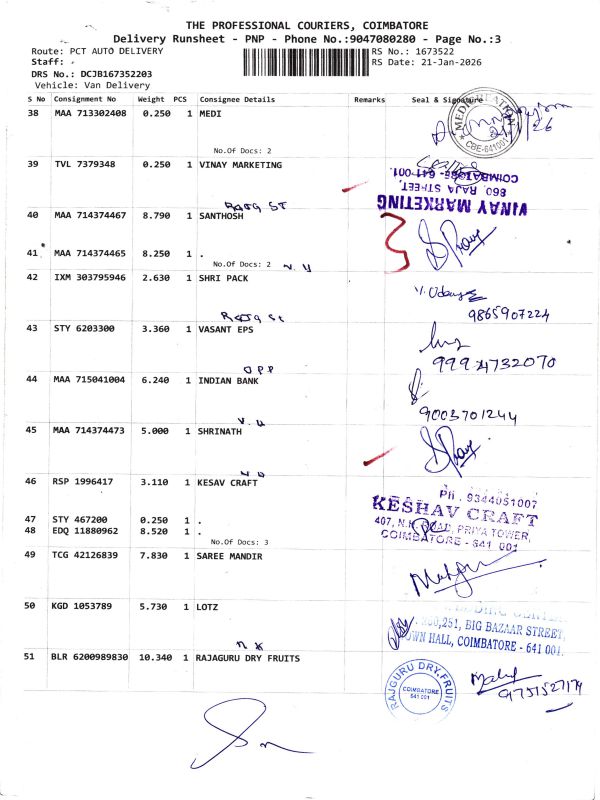 THE PROFESSIONAL COURIERS, COIMBATORE
Delivery Runsheet - PNP - Phone No.:9047080280 - Page No.:3
Route: PCT AUTO DELIVERY RS No.: 1673522
Staff: - RS Date: 21-Jan-2026
DRS No.: DCJB167352203
Vehicle: Van Delivery
S No Consignment No Weight PCS Consignee Details Remarks Seal & Signature
38 MAA 713302408 0.250 1 MEDI
CBE-641001
No.Of Docs: 2
39 TVL 7379348 0.250 1 VINAY MARKETING
COIMBATORE-641-001.
860, RAJA STREET,
VINAY MARKETING
Raja St
40 MAA 714374467 8.790 1 SANTHOSH
41 MAA 714374465 8.250 1 .
No.Of Docs: 2 V.U
42 IXM 303795946 2.630 1 SHRI PACK
V. Udaya
9865907224
Raja St
43 STY 6203300 3.360 1 VASANT EPS
9994732070
OPP
44 MAA 715041004 6.240 1 INDIAN BANK
9003701244
V.U
45 MAA 714374473 5.000 1 SHRINATH
46 RSP 1996417 3.110 1 KESAV CRAFT
PH : 9344051007
KESHAV CRAFT
407, N.H. ROAD, PRIYA TOWER,
COIMBATORE - 641 001
47 STY 467200 0.250 1 .
48 EDQ 11880962 8.520 1 .
No.Of Docs: 3
49 TCG 42126839 7.830 1 SAREE MANDIR
50 KGD 1053789 5.730 1 LOTZ
251, BIG BAZAAR STREET,
TOWN HALL, COIMBATORE - 641 001.
51 BLR 6200989830 10.340 1 RAJAGURU DRY FRUITS
RAJGURU DRY FRUITS
COIMBATORE
641 001
9751527179